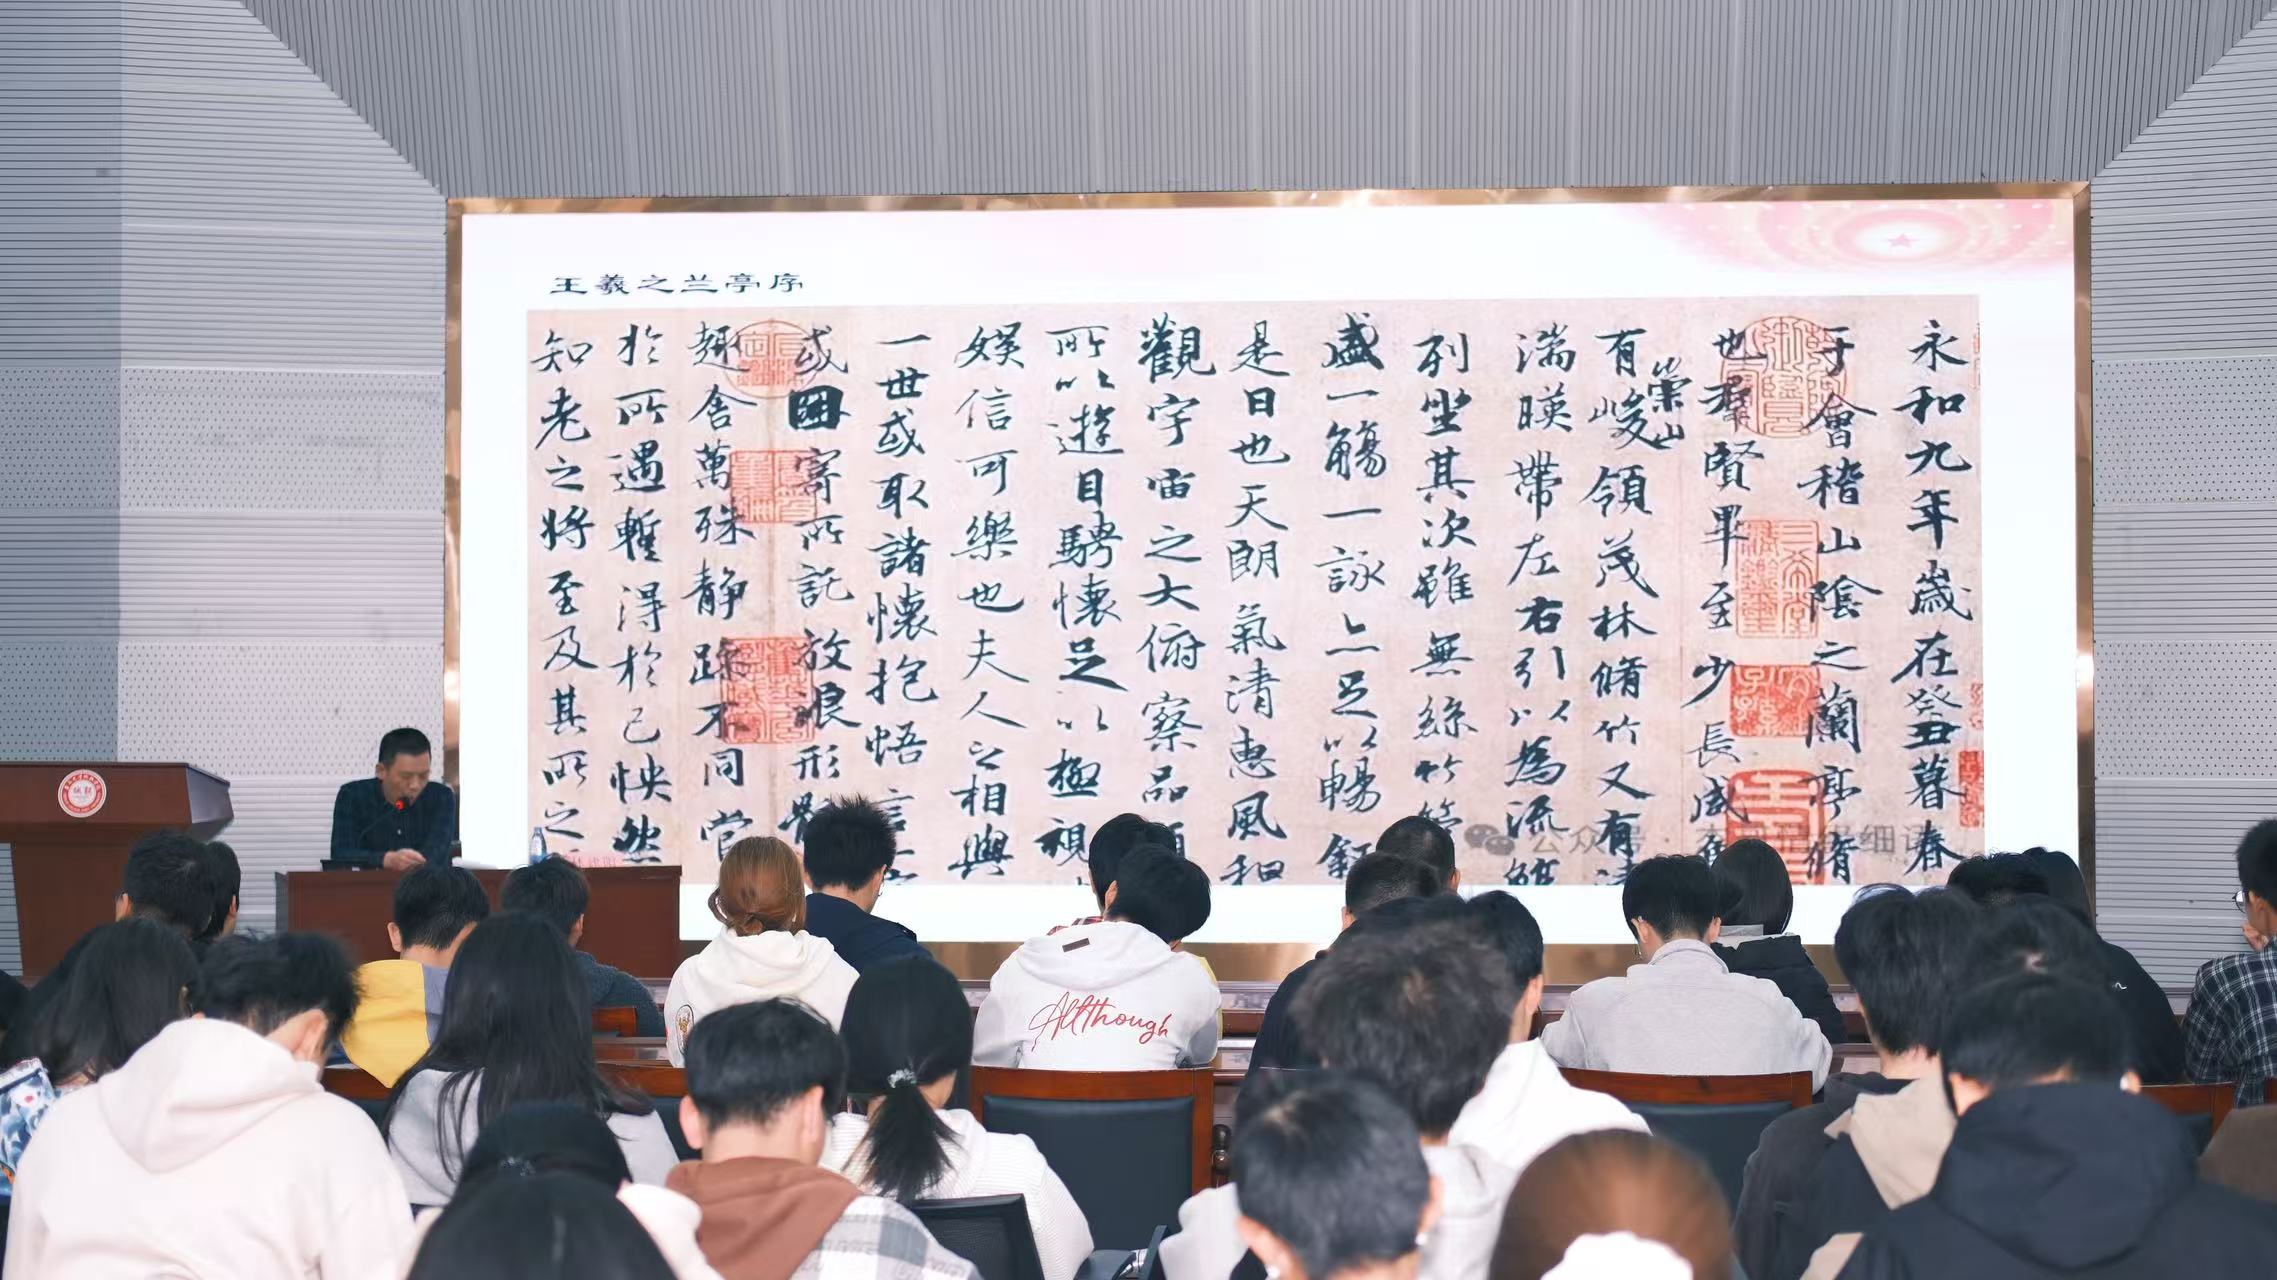 王羲之兰亭序
永和九年歲在癸丑暮春
于會稽山陰之蘭亭脩
也羣賢畢至少長咸集
有崇山峻領茂林脩竹又有清
湍暎帶左右引以為流觴
列坐其次雖無絲竹管
盛一觴一詠亦足以暢敘
是日也天朗氣清惠風和
觀宇宙之大俯察品類
所以遊目騁懷足以極視
娛信可樂也夫人之相與
一世或取諸懷抱悟言
或因寄所託放浪形骸
趣舍萬殊靜躁不同當
於所遇暫得於己怏然
知老之將至及其所之
公众号 · 细语
Allthough